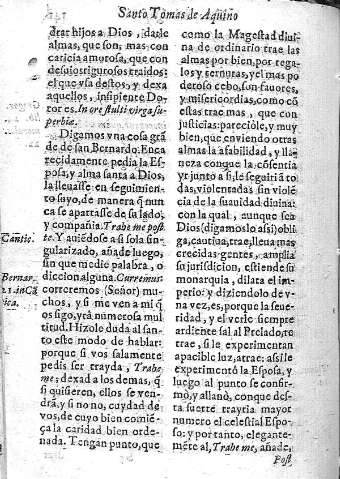 Santo Tomas de Aquino
drar hijos a Dios, idasle
almas, que son, mas con
caricia amorosa, que con
desujos rigurosos traidos:
el que vsa destos, y dexa
aquellos, insipiente Do-
tor es. In ore stulti virga su-
perbiæ.
Digamos vna cosa grã
de de san Bernardo: Enca
recidamente pedia la Es-
posa, y alma santa a Dios,
la lleuasse en seguimien
to suyo, de manera q̃ nun
ca se apartasse de su lado,
y compañia. Trahe me post
te. Y auiẽdose a si sola sin-
gularizado, añade luego,
sin que medie palabra, o
diccion alguna. Curremus
correremos (Señor) mu-
chos, y si me ven a mi q̃
os sigo, yrá numerosa mul
titud. Hizole duda al san-
to este modo de hablar:
porque si vos salamente
pedis ser trayda, Trahe
me; dexad a los demas, q̃
si quisieren, ellos se ven-
drã, y si no no, cuydad de
vos, de cuyo bien comiẽ-
ça la caridad bien orde-
nada. Tengan punto, que
Cantic.
Bernar.
21. in Cã
tica.
como la Magestad diui-
na de ordinario trae las
almas por bien, por rega-
los y ternuras, y el mas po
deroso cebo, son fauores,
y misericordias, como cõ
estas trae mas, que con
justicias: pareciòle, y muy
bien, que enviendo otras
almas la afabilidad, y lla-
neza conque la cõsentia
yr junto a si, le seguirã to
das, violentadas sin violẽ
cia de la suauidad diuina:
con la qual, aunque sea
Dios (digamoslo assi) obli
ga, cautiua, trae, lleua mas
crecidas gentes, amplia
su jurisdicion, estiende su
monarquia, dilata el im-
perio: y diziendolo de v-
na vez, es, porque la seue-
ridad, y el verle siempre
ardiente sal al Prelado, re
trae, si le experimentan
apacible luz, atrae: assi le
experimentò la Esposa, y
luego al punto se confir-
mò, y allanò, conque des-
ta suerte trayria mayor
numero el celestial Espo-
so: y por tanto, elegante-
mẽte al, Trahe me, añade,
Post